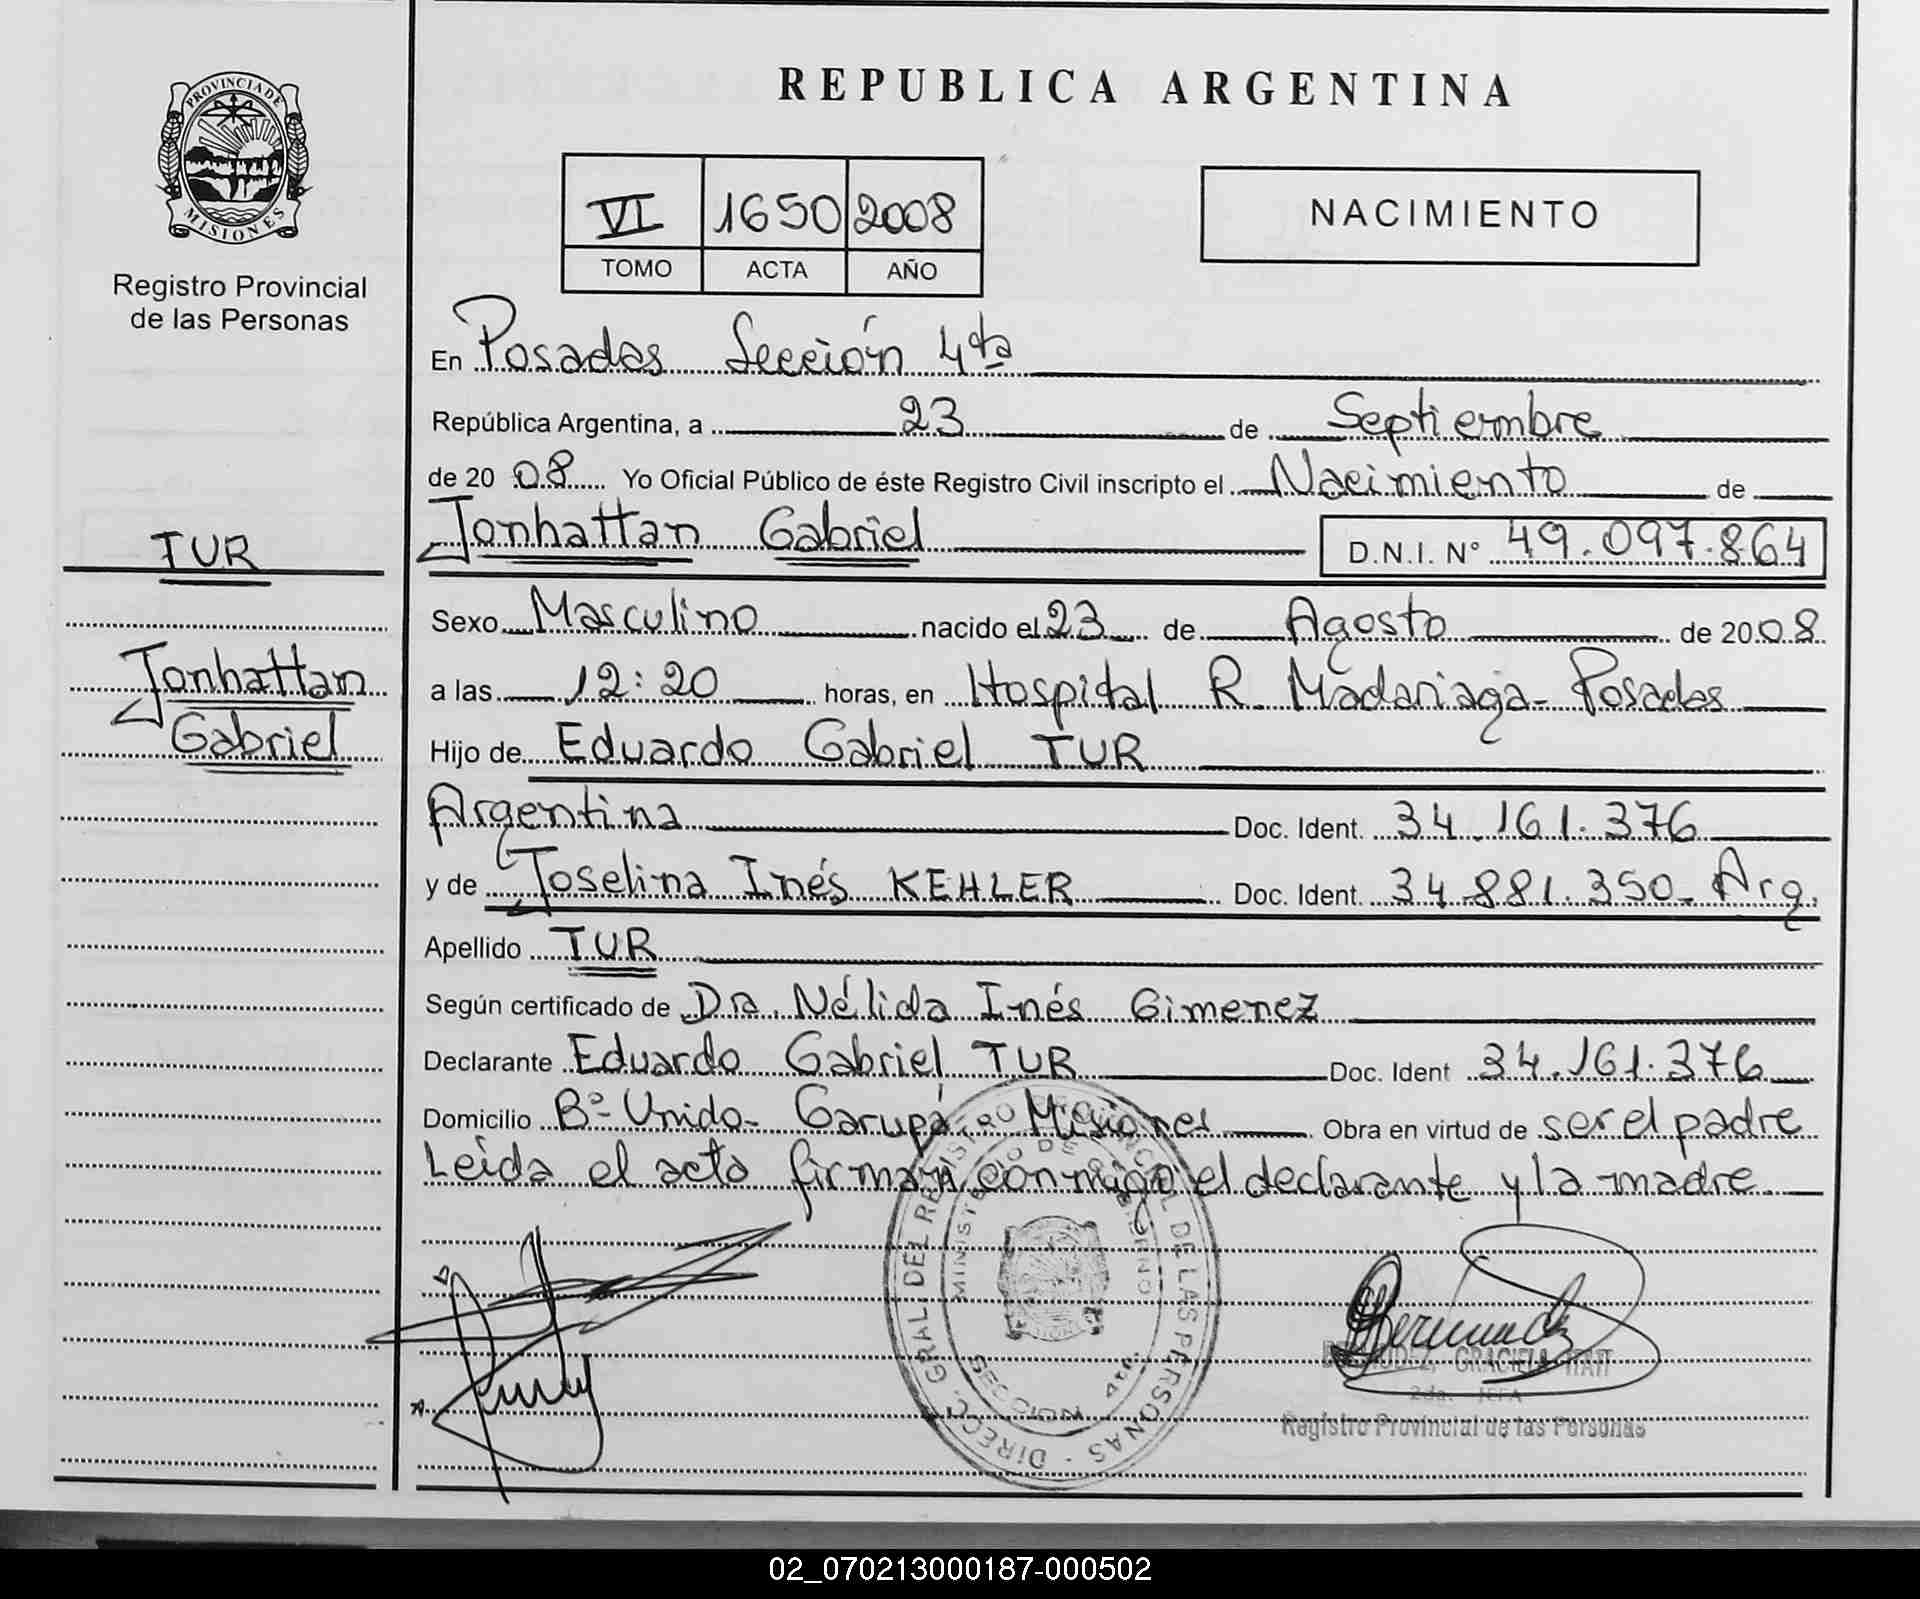 PROVINCIA DE
MISIONES
Registro Provincial
de las Personas
TUR
Jonhattan
Gabriel
REPUBLICA ARGENTINA
VI 1650 2008
TOMO ACTA AÑO
NACIMIENTO
En Posadas Sección 4ta
República Argentina, a 23 de Septiembre
de 20 08 Yo Oficial Público de éste Registro Civil inscripto el Nacimiento de
Jonhattan Gabriel D.N.I. N° 49.097.864
Sexo Masculino nacido el 23 de Agosto de 20 08
a las 12:20 horas, en Hospital R. Madariaga - Posadas
Hijo de Eduardo Gabriel TUR
Argentina Doc. Ident. 34.161.376
y de Joselina Inés KEHLER Doc. Ident. 34.881.350 - Arg.
Apellido TUR
Según certificado de Dra. Nélida Inés Gimenez
Declarante Eduardo Gabriel TUR Doc. Ident 34.161.376
Domicilio B° Unido - Garupá - Misiones Obra en virtud de ser el padre
Leida el acta firman conmigo el declarante y la madre
DIRECC. GRAL DEL REGISTRO PROVINCIAL DE LAS PERSONAS
MINISTERIO DE GOBIERNO
SECCION 4ta
GRACIELA
2da. JEFA
Registro Provincial de las Personas
02_070213000187-000502